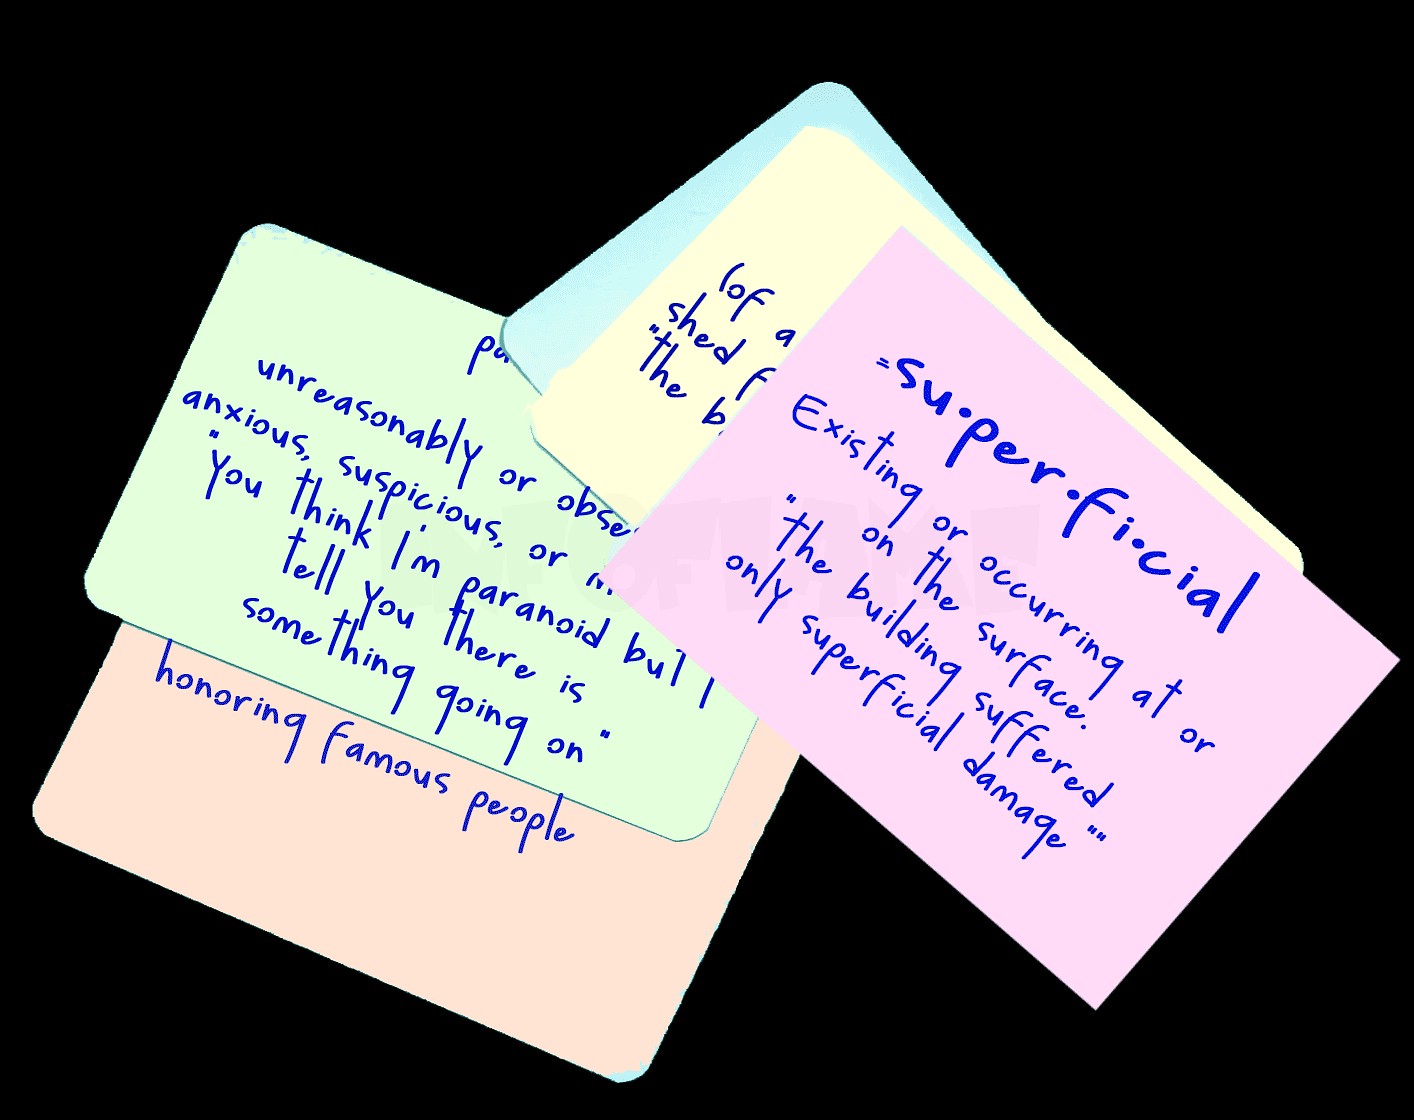 pa
unreasonably or obse
anxious, suspicious, or m
"You think I'm paranoid but I
tell you there is
something going on"
honoring famous people
(of a
shed f
"the b
=su•per•fi•cial
Existing or occurring at or
on the surface.
"the building suffered
only superficial damage""